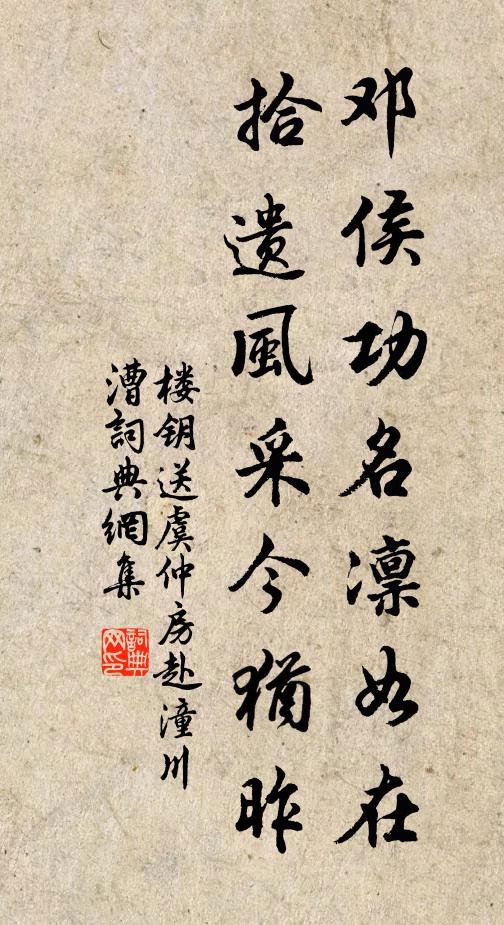 邓侯功名凛如在
拾遗風采今猶昨
楼钥送虞仲房赴潼川
漕詞典網集
詞典
网印